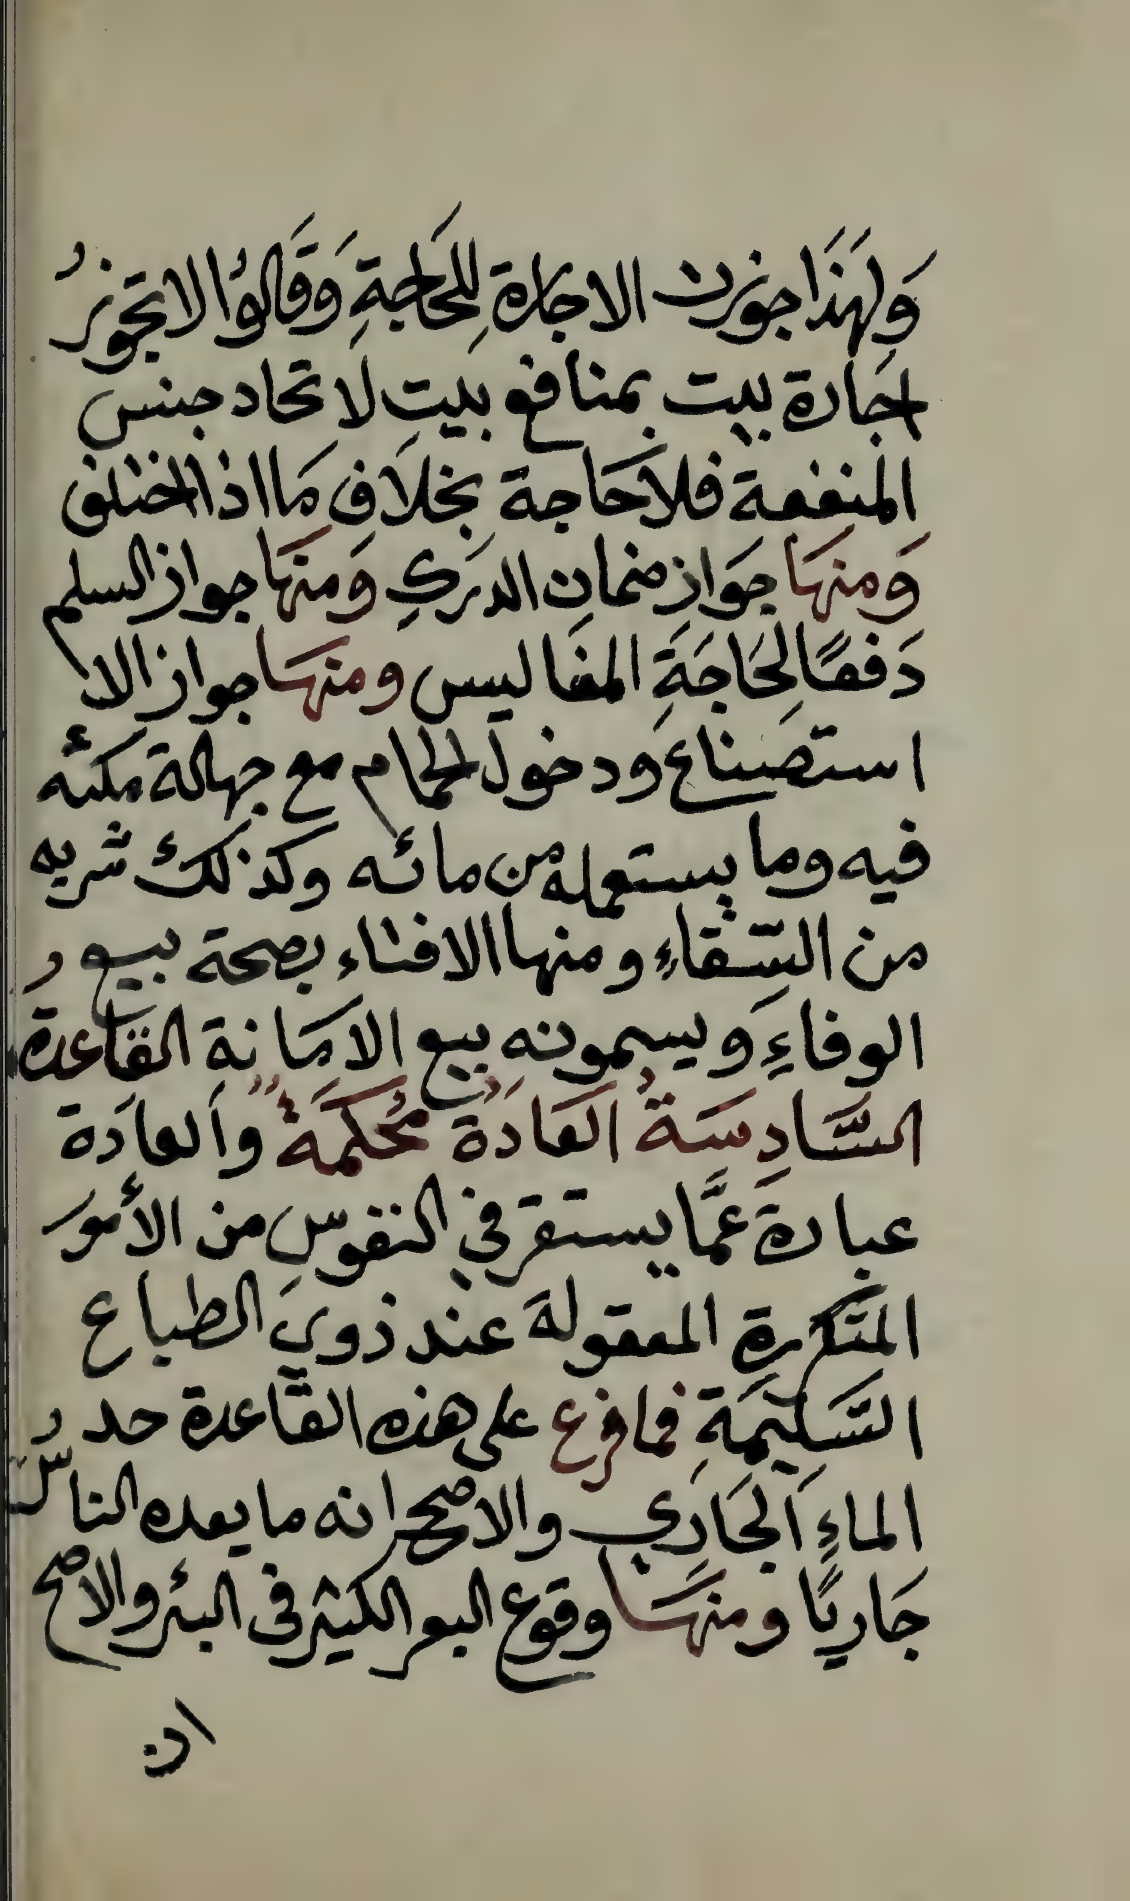 وَلِهَذَا جوزت الاجارة لِلحَاجةِ وَقَالُوا لا تجوزُ
اجَارة بيت بمنافع بيتِ لاتحاد جنس
المنفعة فلا حَاجة بخلاف مَا اذا اختلف
وَمنهَا جوَاز ضمان الدركِ وَمنهَا جواز السلم
دَفعًا لِحَاجَةِ المفاليس ومنهَا جواز الا
استصناع ودخول الحمام مع جهالة مكثه
فيه وما يستعمله من مائه وكذلك شربه
من السّقاءِ ومنها الافتاء بصحة بيع
الوفاءِ وَيسمونه بيع الامَانةِ القَاعدة
السَّادِسَةُ العَادَة محُكمَةٌ والعادَة
عبارة عمَّا يستقر في النفوسِ من الأمور
المتَكررةِ المعقولة عند ذوي الطباع
السَّليمَةِ فما فرع على هذه القاعدة حد
الماءِ الجَارِي والاصح انه ما يعده الناسُ
جَاريًا ومنهَا وقوع البعر الكثير في البئر والاصح
ان